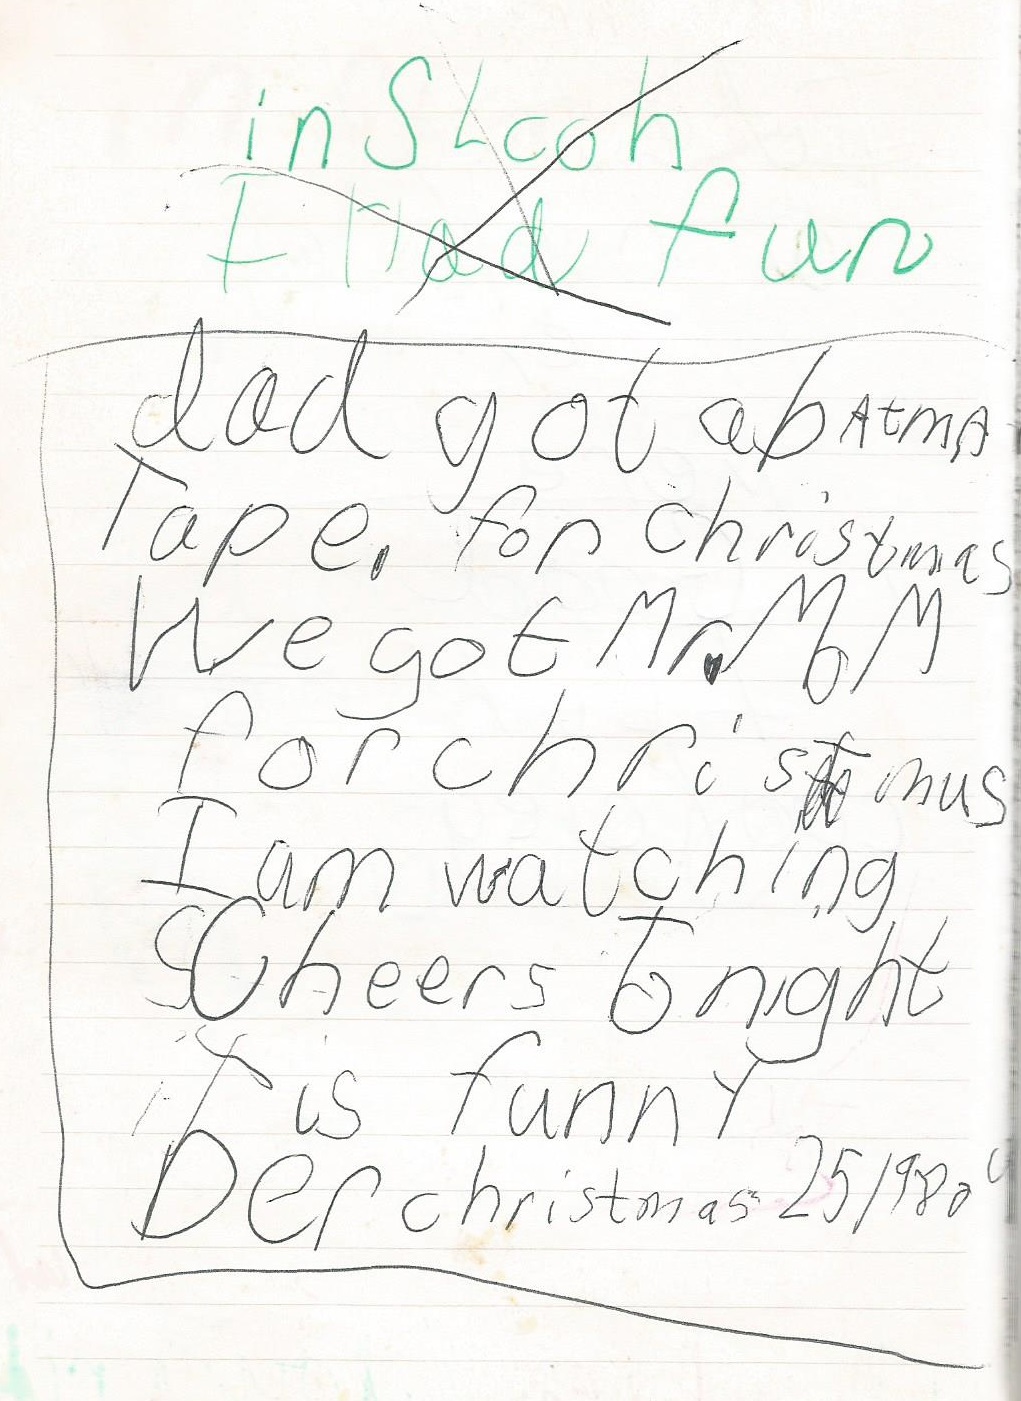 in SLcoh
I Had fun
dad got a bAtmA
Tape. for christmas
We got Mr. MoM
for christmus
I am watching
Cheers Tonight
it is funny
Der christmas 25/1980